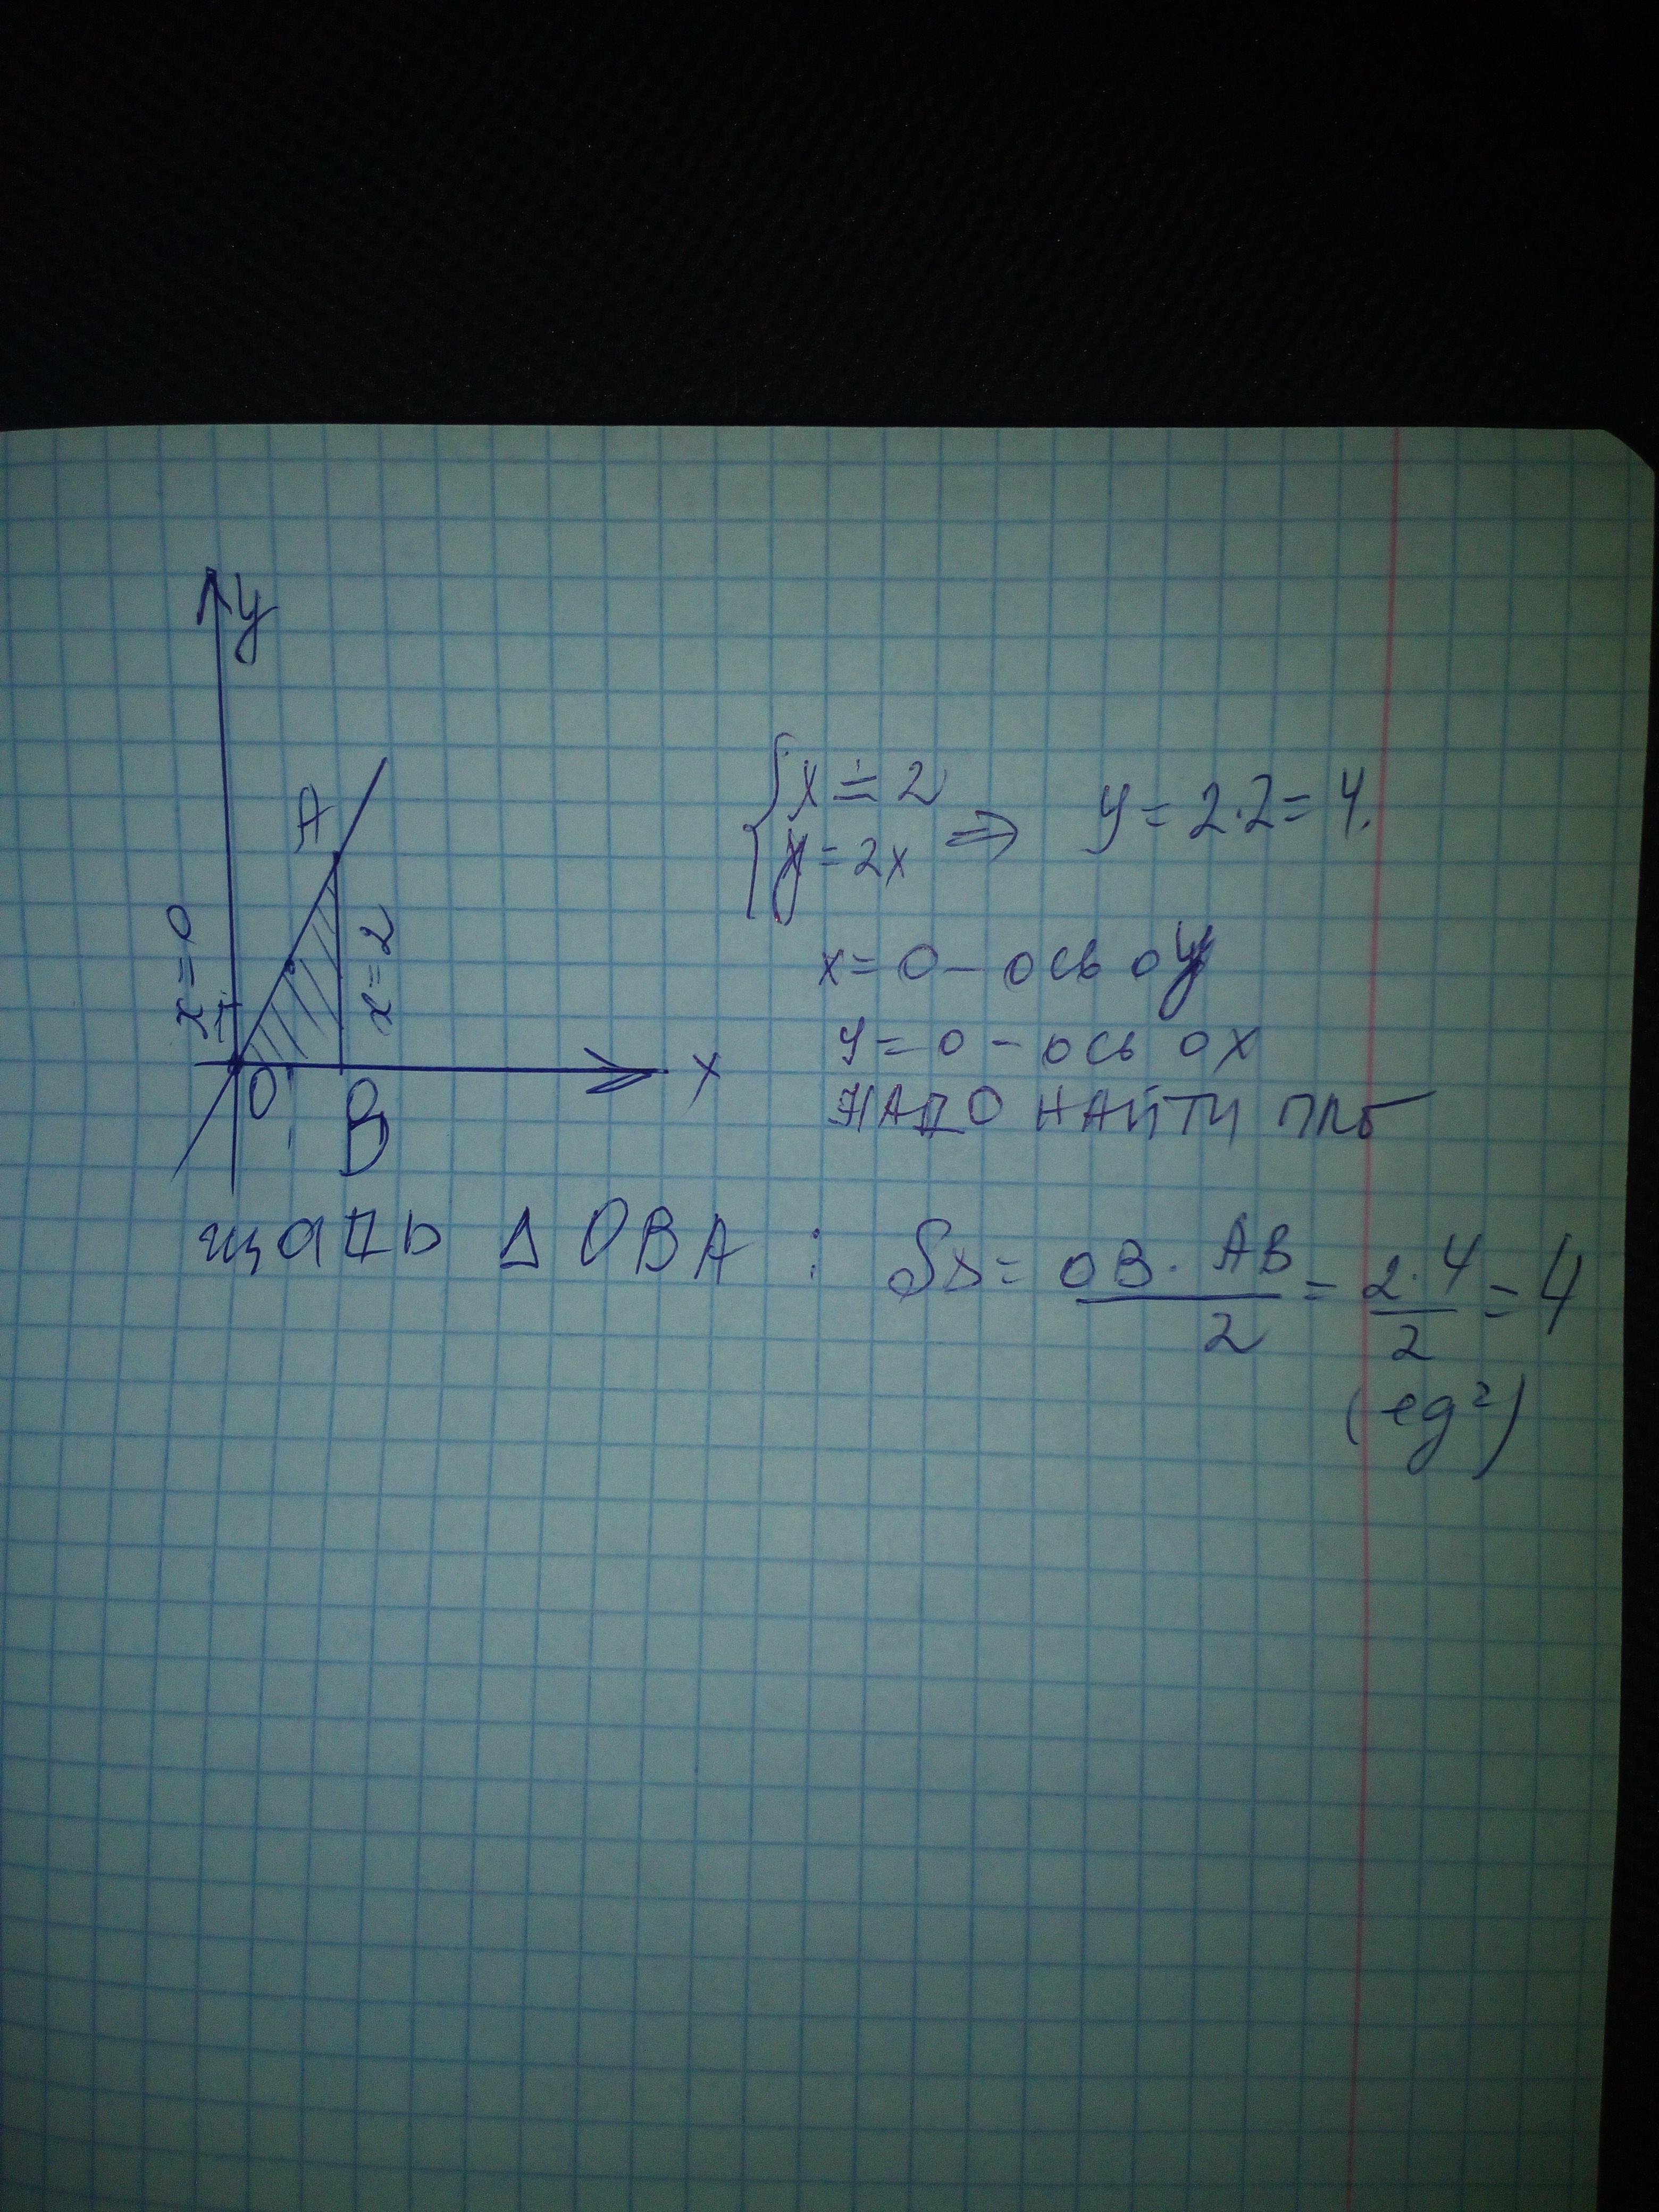 y
A
x=0
x=2
O
B
x
{x=2
y=2x => y=2·2=4.
x=0 - ось oy
y=0 - ось ox
НАДО НАЙТИ ПЛО
щадь Δ OBA : SΔ= OB·AB/2 = 2·4/2 = 4
(ед²)